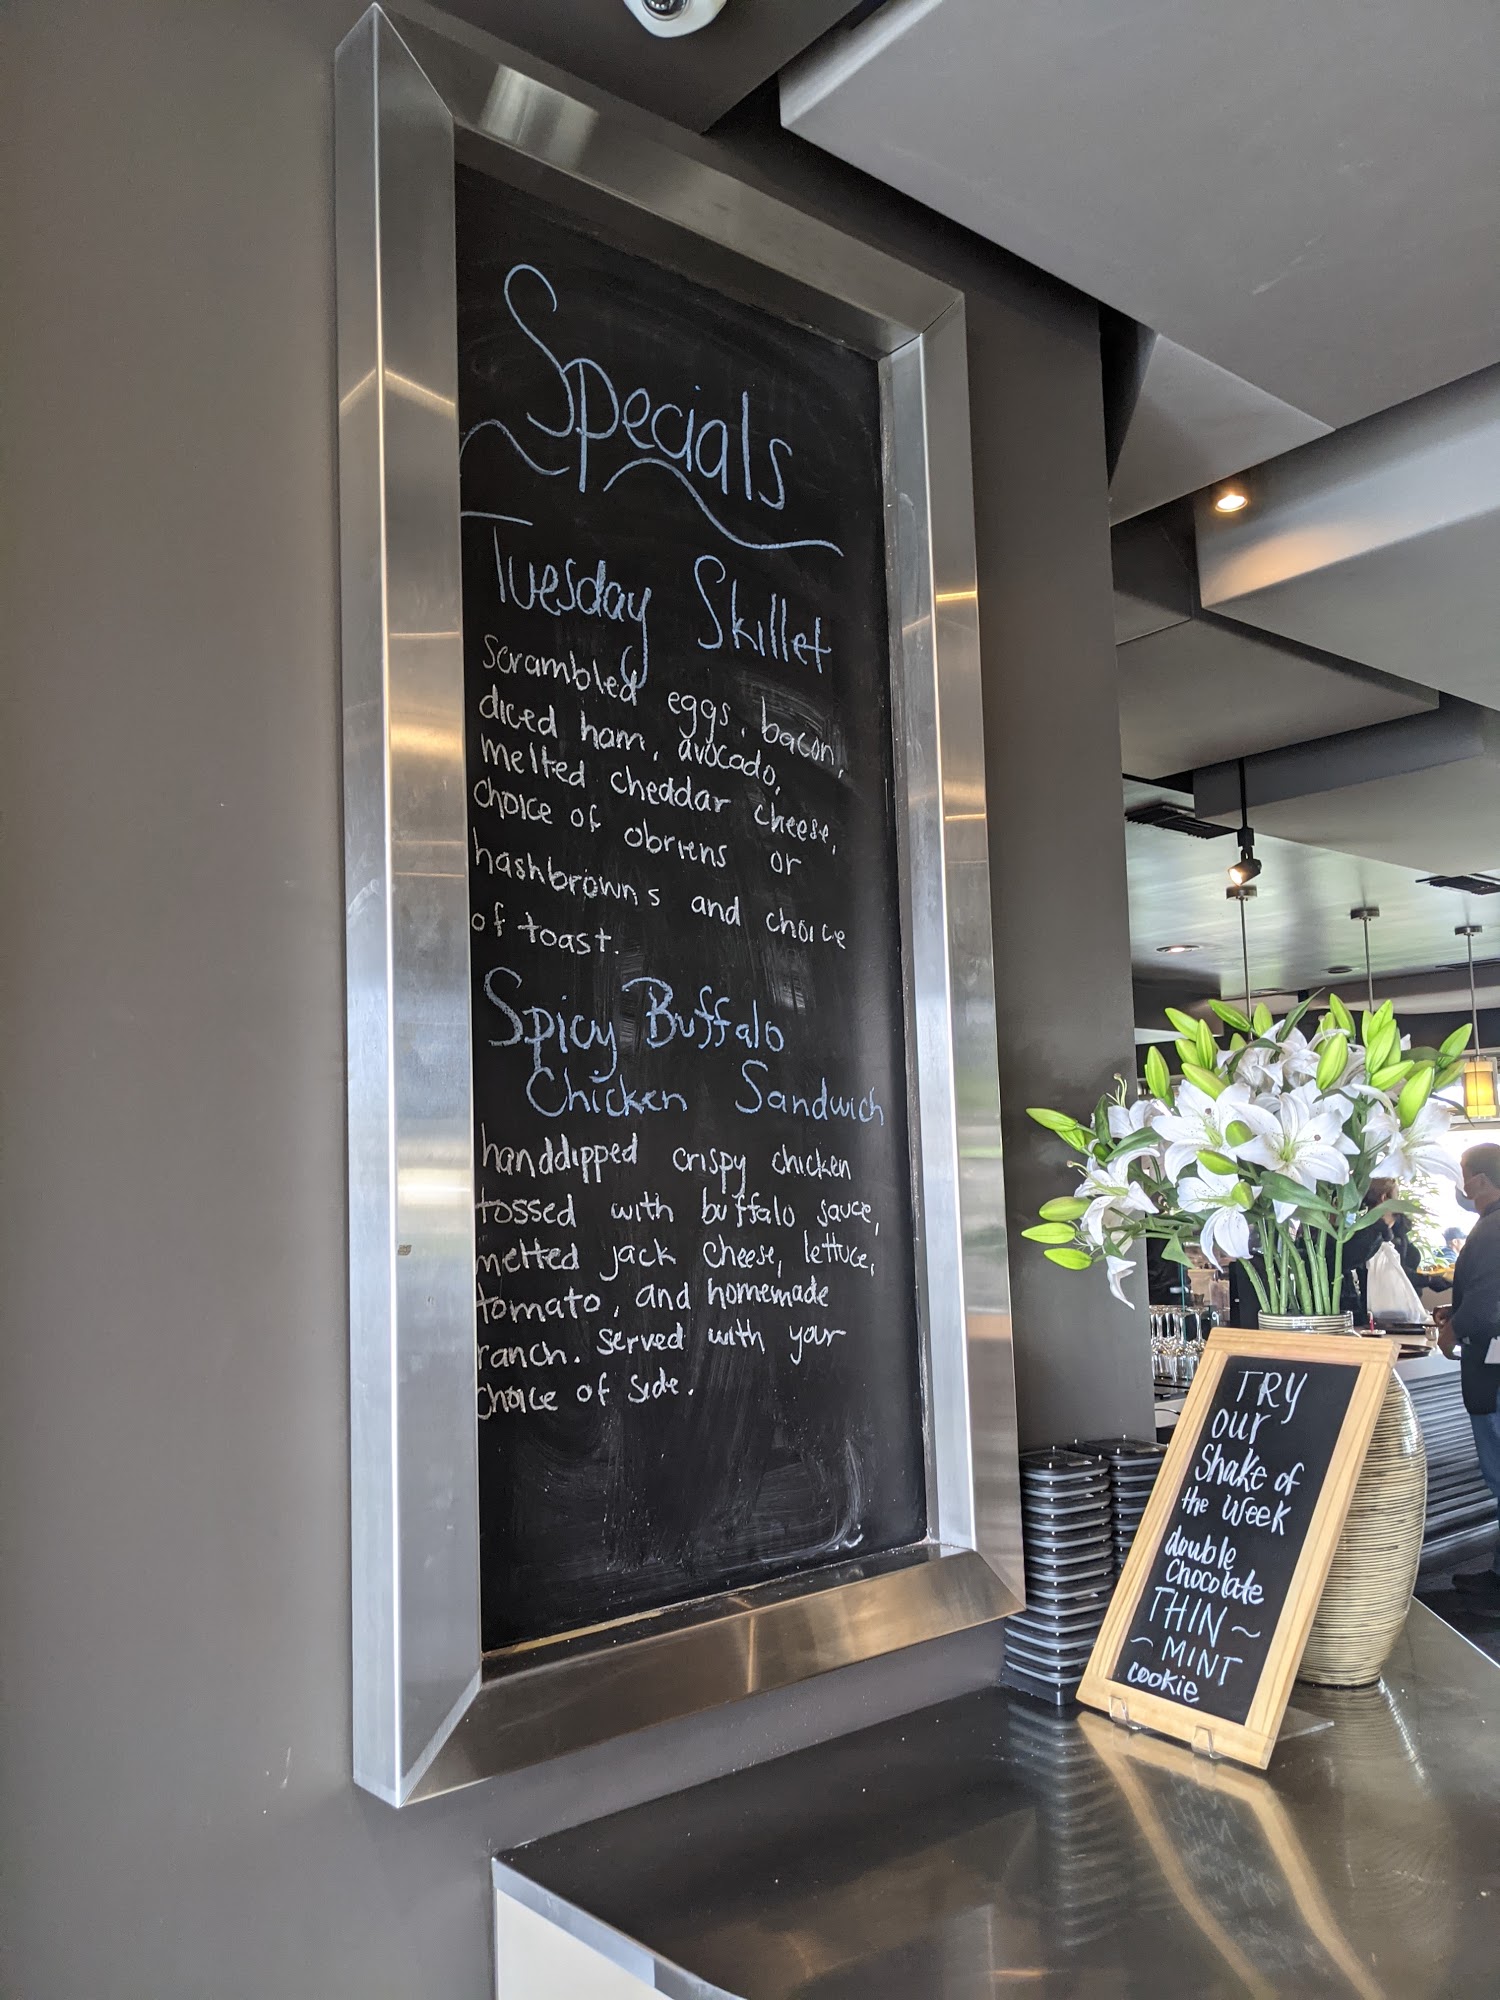 Specials
Tuesday Skillet
scrambled eggs, bacon,
diced ham, avocado,
melted cheddar cheese,
choice of obriens or
hashbrowns and choice
of toast.
Spicy Buffalo
Chicken Sandwich
handdipped crispy chicken
tossed with buffalo sauce,
melted jack cheese, lettuce,
tomato, and homemade
ranch. served with your
choice of side.
TRY
our
Shake of
the Week
double
Chocolate
THIN ~
~ MINT
cookie